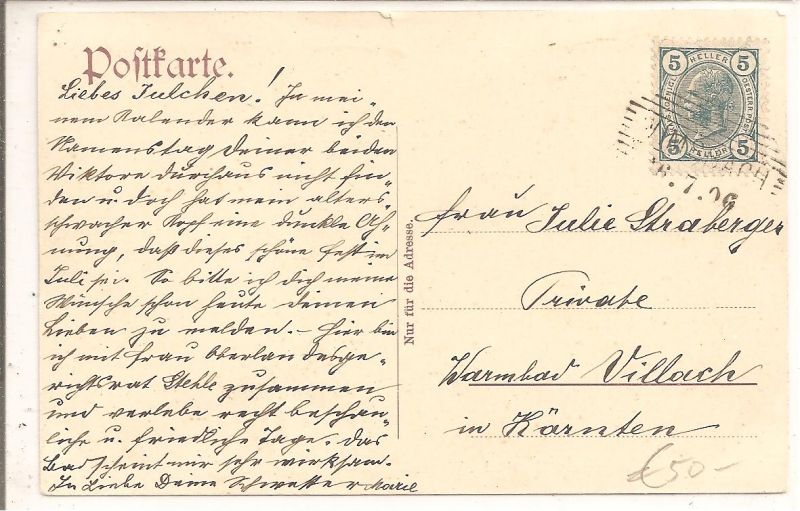 Postkarte.
Liebes Julchen! In mei„
nem Kalender kann ich den
Namenstag Deiner beiden
Viktore durchaus nicht fin„
den u. doch hat mein alters„
schwacher Kopf eine dunkle Ah„
nung, daß dieses schöne Fest im
Juli sei. So bitte ich dich meine
Wünsche schon heute deinen
Lieben zu melden. – Hier bin
ich mit Frau Oberlandesge„
richtsrat Stehle zusammen
und verlebe recht beschau„
liche u. friedliche Tage. Das
Bad scheint mir sehr wirksam.
In Liebe Deine Schwester Marie
Nur für die Adresse.
5 HELLER 5
5 HELLER 5
7.06
Frau Julie Straberger
Private
Warmbad Villach
in Kärnten
€50-